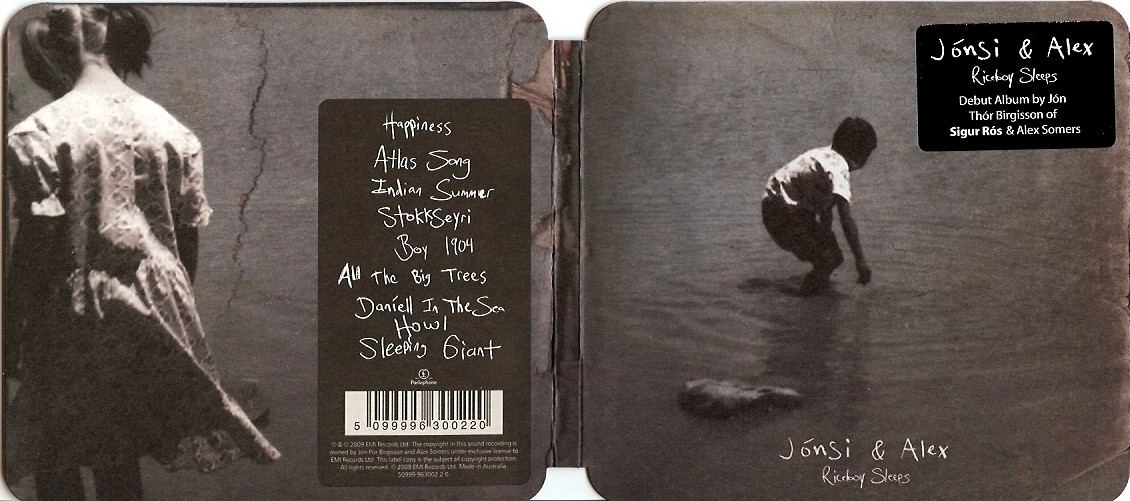 Happiness
Atlas Song
Indian Summer
Stokkseyri
Boy 1904
All The Big Trees
Daníell In The Sea
Howl
Sleeping Giant
£
Parlophone
5 099996 300220
℗ & © 2009 EMI Records Ltd. The copyright in this sound recording is
owned by Jón Þór Birgisson and Alex Somers under exclusive license to
EMI Records Ltd. This label copy is the subject of copyright protection.
All rights reserved. © 2009 EMI Records Ltd. Made in Australia
50999 963002 2 0
Jónsi & Alex
Riceboy Sleeps
Debut Album by Jón
Thór Birgisson of
Sigur Rós & Alex Somers
Jónsi & Alex
Riceboy Sleeps